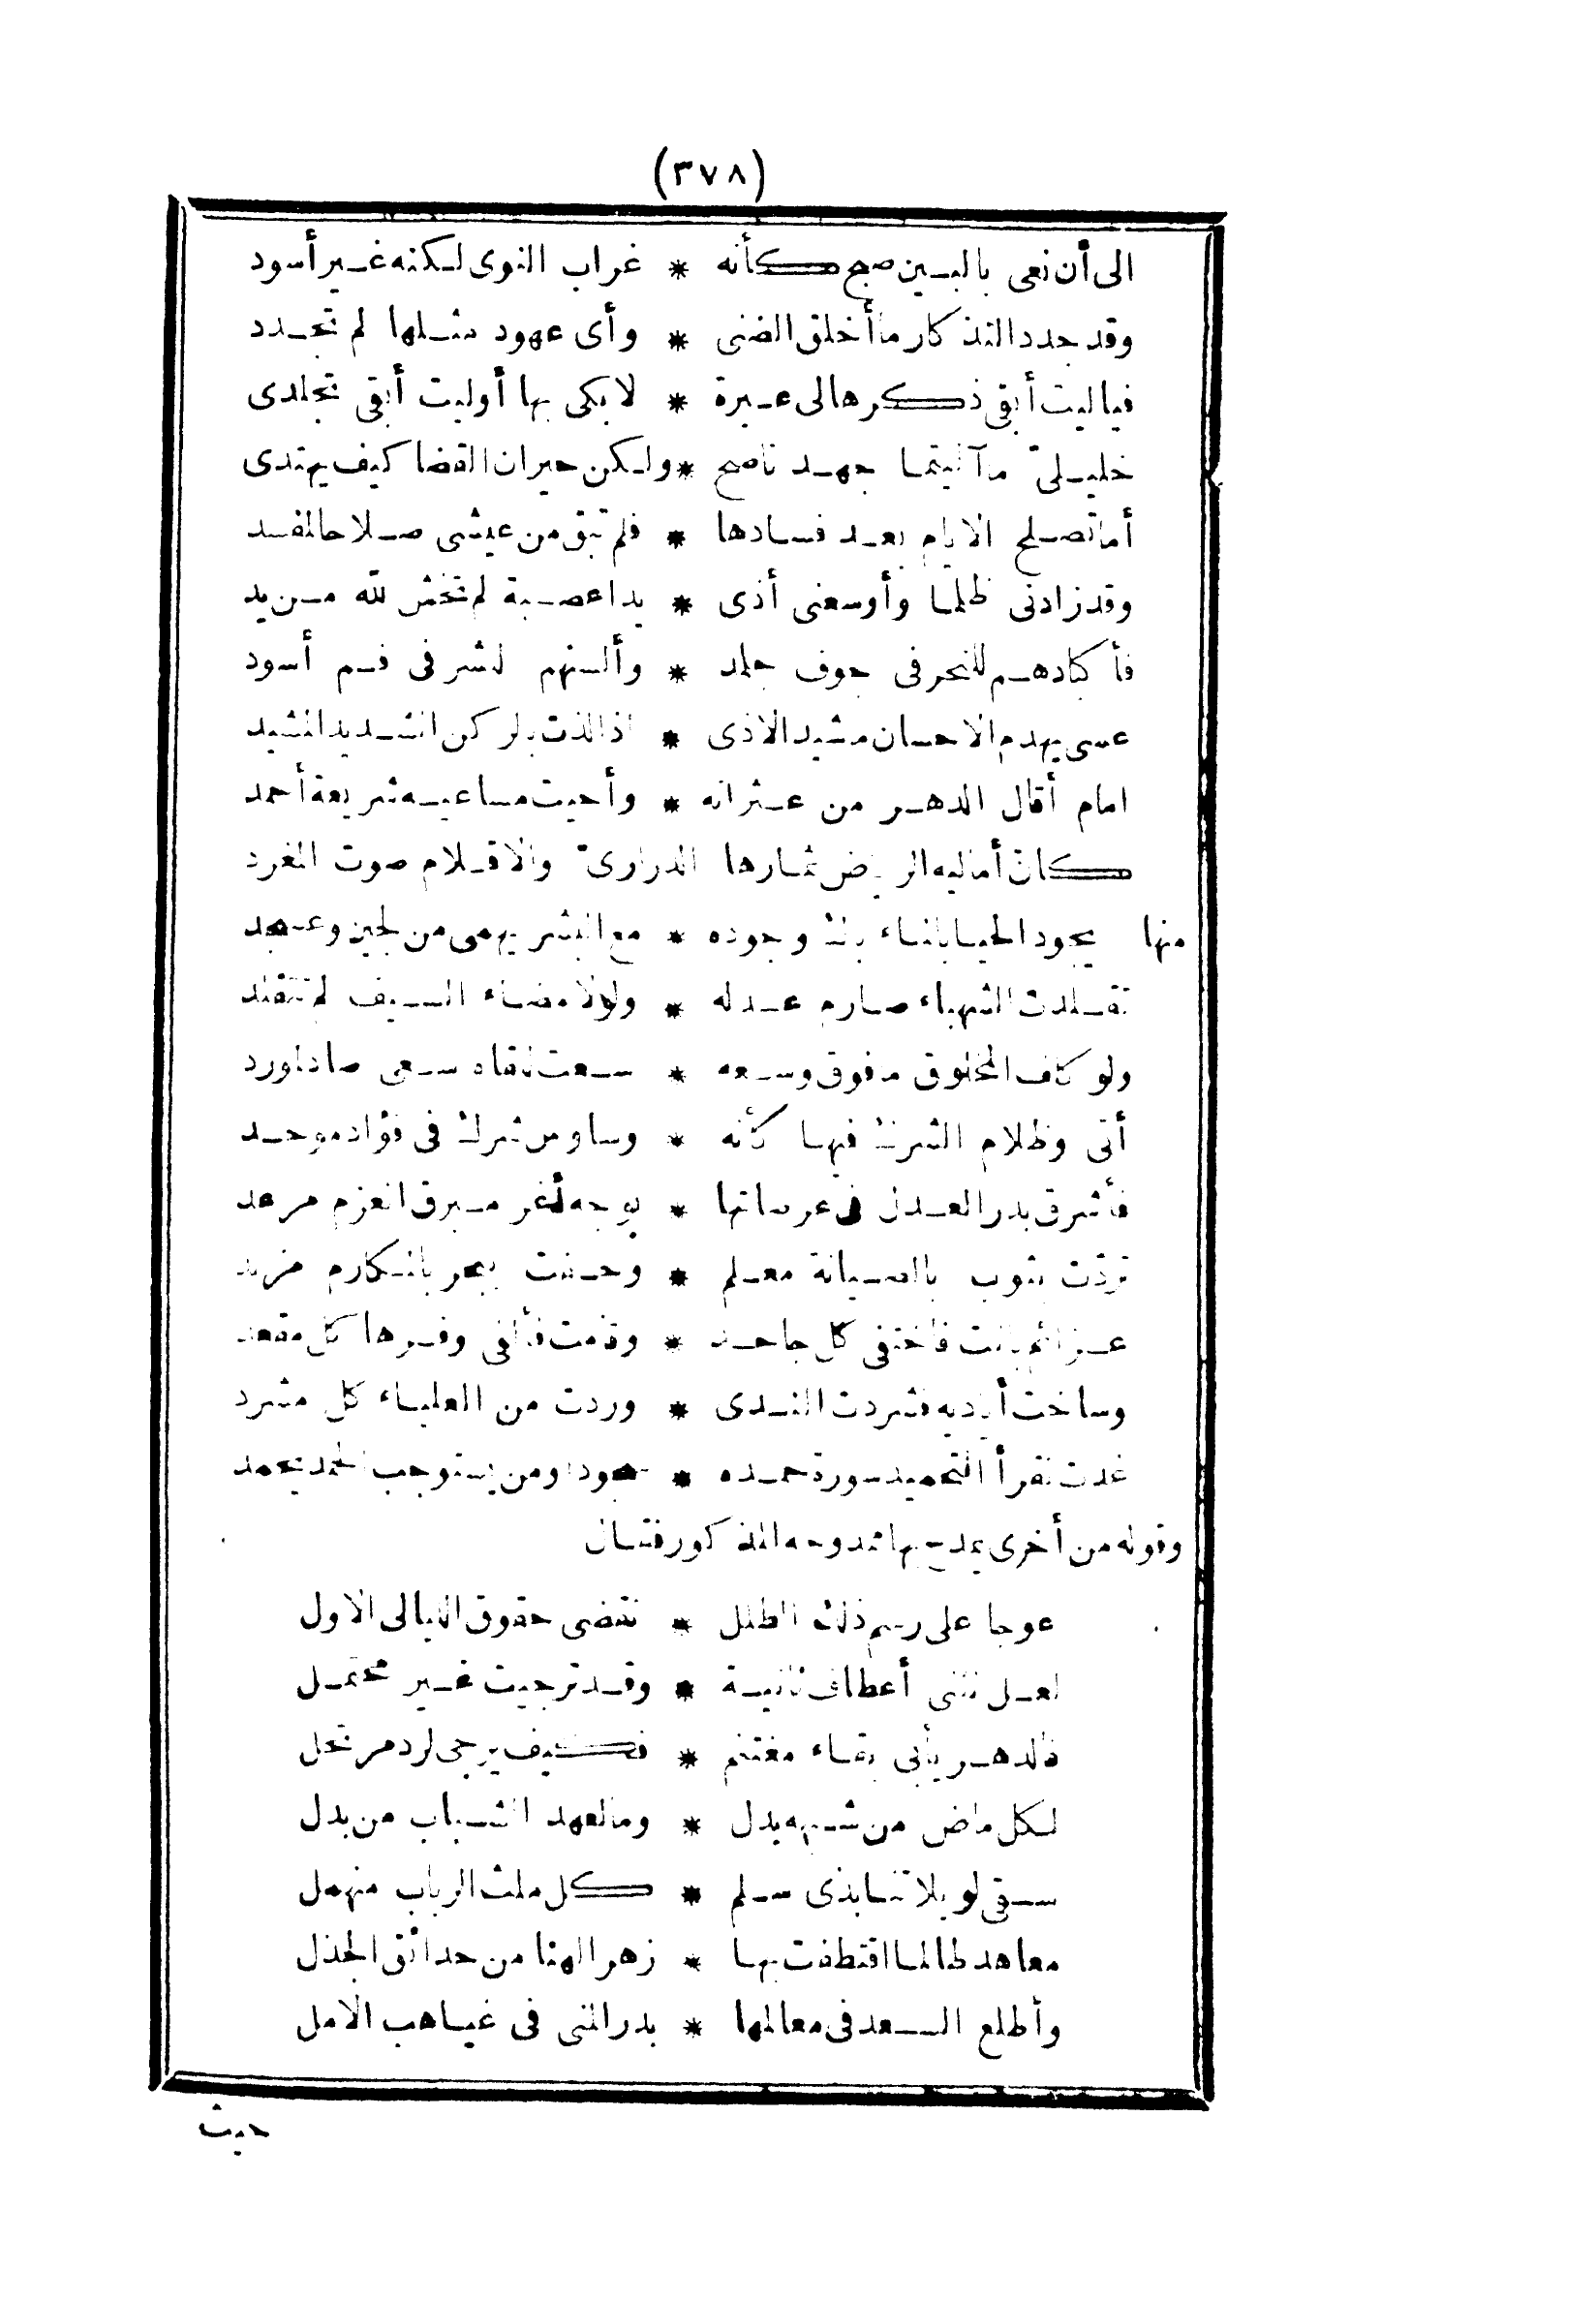 (٣٧٨)
الى أن نعى بالبين صبح كأنه * غراب النوى لكنه غير أسود
وقد جدد التذكار ما أخلق الضنى * وأى عهود مثلها لم تجدد
فياليت أبقى ذكرها لى عبرة * لابكى بها أوليت أبقى تجلدى
خليلىّ ما آليتما جهد ناصح * ولكن حيران القضا كيف يهتدى
أما تصلح الايام بعد فسادها * فلم تبق من عيشى صلاحا لمفسد
وقد زادنى ظلما وأوسعنى أذى * يدا عصبة لم تخش لله من يد
فأكبادهم للنحر فى جوف جلمد * وألسنهم للشر فى فم أسود
عسى يهدم الاحسان مشيد الاذى * اذا لذت بالركن الشديد المشيد
امام أقال الدهر من عثراته * وأحيت مساعيه شريعة أحمد
كانّ أماليه الرياض ثمارها الدرارىّ والاقلام صوت المغرد
منها يجود الحيا بالماء بلك وجوده * مع البشر يهمى من لجين وعسجد
تقلدت الشهباء صارم عدله * ولولا مضاء السيف لم تتقلد
ولو كلف المخلوق مفوق وسعه * سعت للقاه سعى صاد لورد
أتى وظلام الشرك فيها كأنه * وساوس شرك فى فؤاد موحد
فأشرق بدر العدل فى عرصاتها * بوجه أغر مبرق العزم مرعد
تردّت بثوب بالصيانة معلم * وحفت ببحر بالمكارم مزبد
عزائم بانت فاختفى كل جاحد * وقامت فألفى وفرها كل مقعد
وساخت أياديه فشردت الندى * وردت من العلياء كل مشرد
غدت تقرأ التحميد سورة حمده * سجودا ومن يستوجب الحمد يحمد
وقوله من أخرى يمدح بها ممدوحه المذكور فقال
عوجا على رسم ذلك الطلل * نقضى حقوق الليالى الاول
لعل تثنى أعطاف ثانية * وقد ترجيت غير محتمل
فالدهر يأبى بقاء مغتنم * فكيف يرجى لرد مرتحل
لكل ماض من شبهه بدل * وما لعهد الشباب من بدل
سقى لويلاتنا بذى سلم * كل ملث الرباب منهمل
معاهد طالما اقتطفت بها * زهر الهنا من حدائق الجذل
وأطلع السعد فى معالمها * بدر المنى فى غياهب الامل
حيث